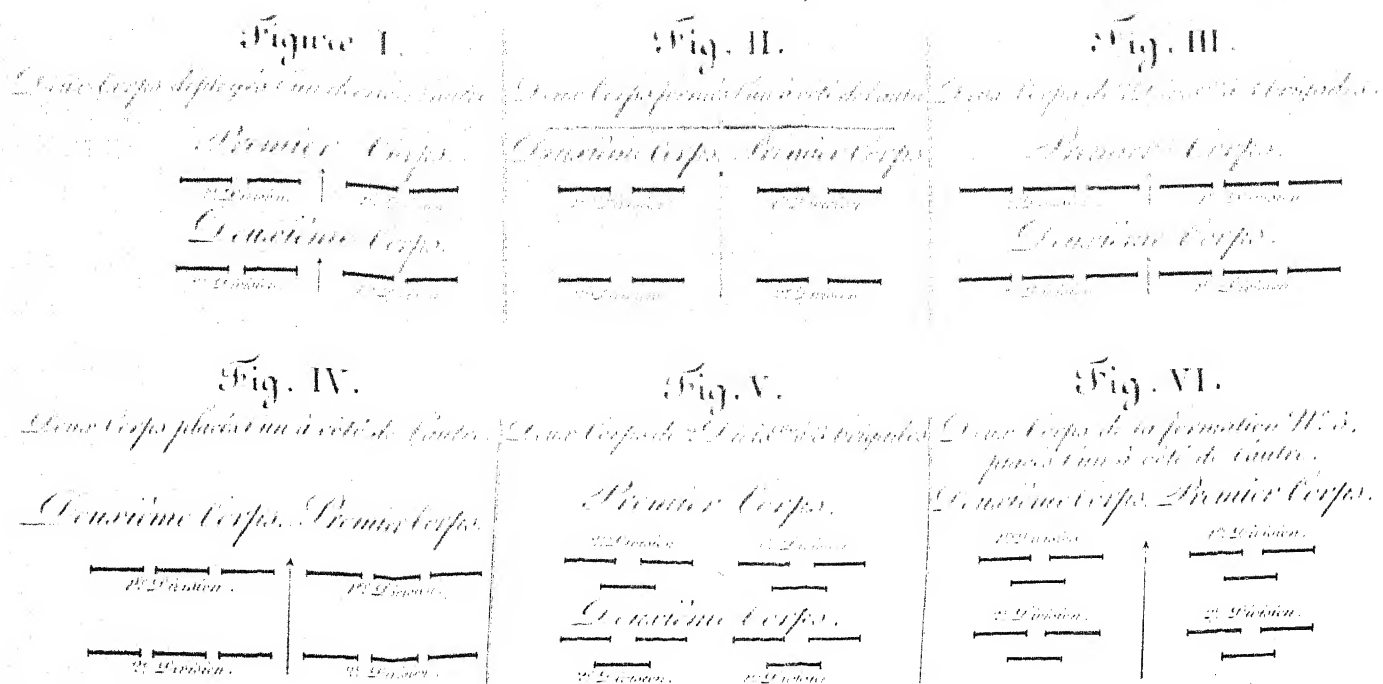 Figure I.
Deux Corps deployés l'un derrière l'autre
Premier Corps.
2e Division 1re Division
Deuxième Corps.
2e Division. 1re Division
Fig. II.
Deux Corps formés l'un à côté de l'autre
Deuxième Corps. Premier Corps
1re Division 1re Division
2e Division 2e Division
Fig. III.
Deux Corps de 2 Divisons à 3 brigades.
Premier Corps.
Division 1re Division
Deuxième Corps.
Division 1re Division
Fig. IV.
Deux Corps placés l'un à côté de l'autre.
Deuxième Corps. Premier Corps.
1re Division. 1re Division.
2e Division. 2e Division.
Fig. V.
Deux Corps de 2 Divisons à 3 brigades
Premier Corps.
2e Division 1re Division
Deuxième Corps.
2e Division. 1re Division
Fig. VI.
Deux Corps de la formation No. 5,
placés l'un à côté de l'autre.
Deuxième Corps. Premier Corps.
1re Division 1re Division.
2e Division. 2e Division.